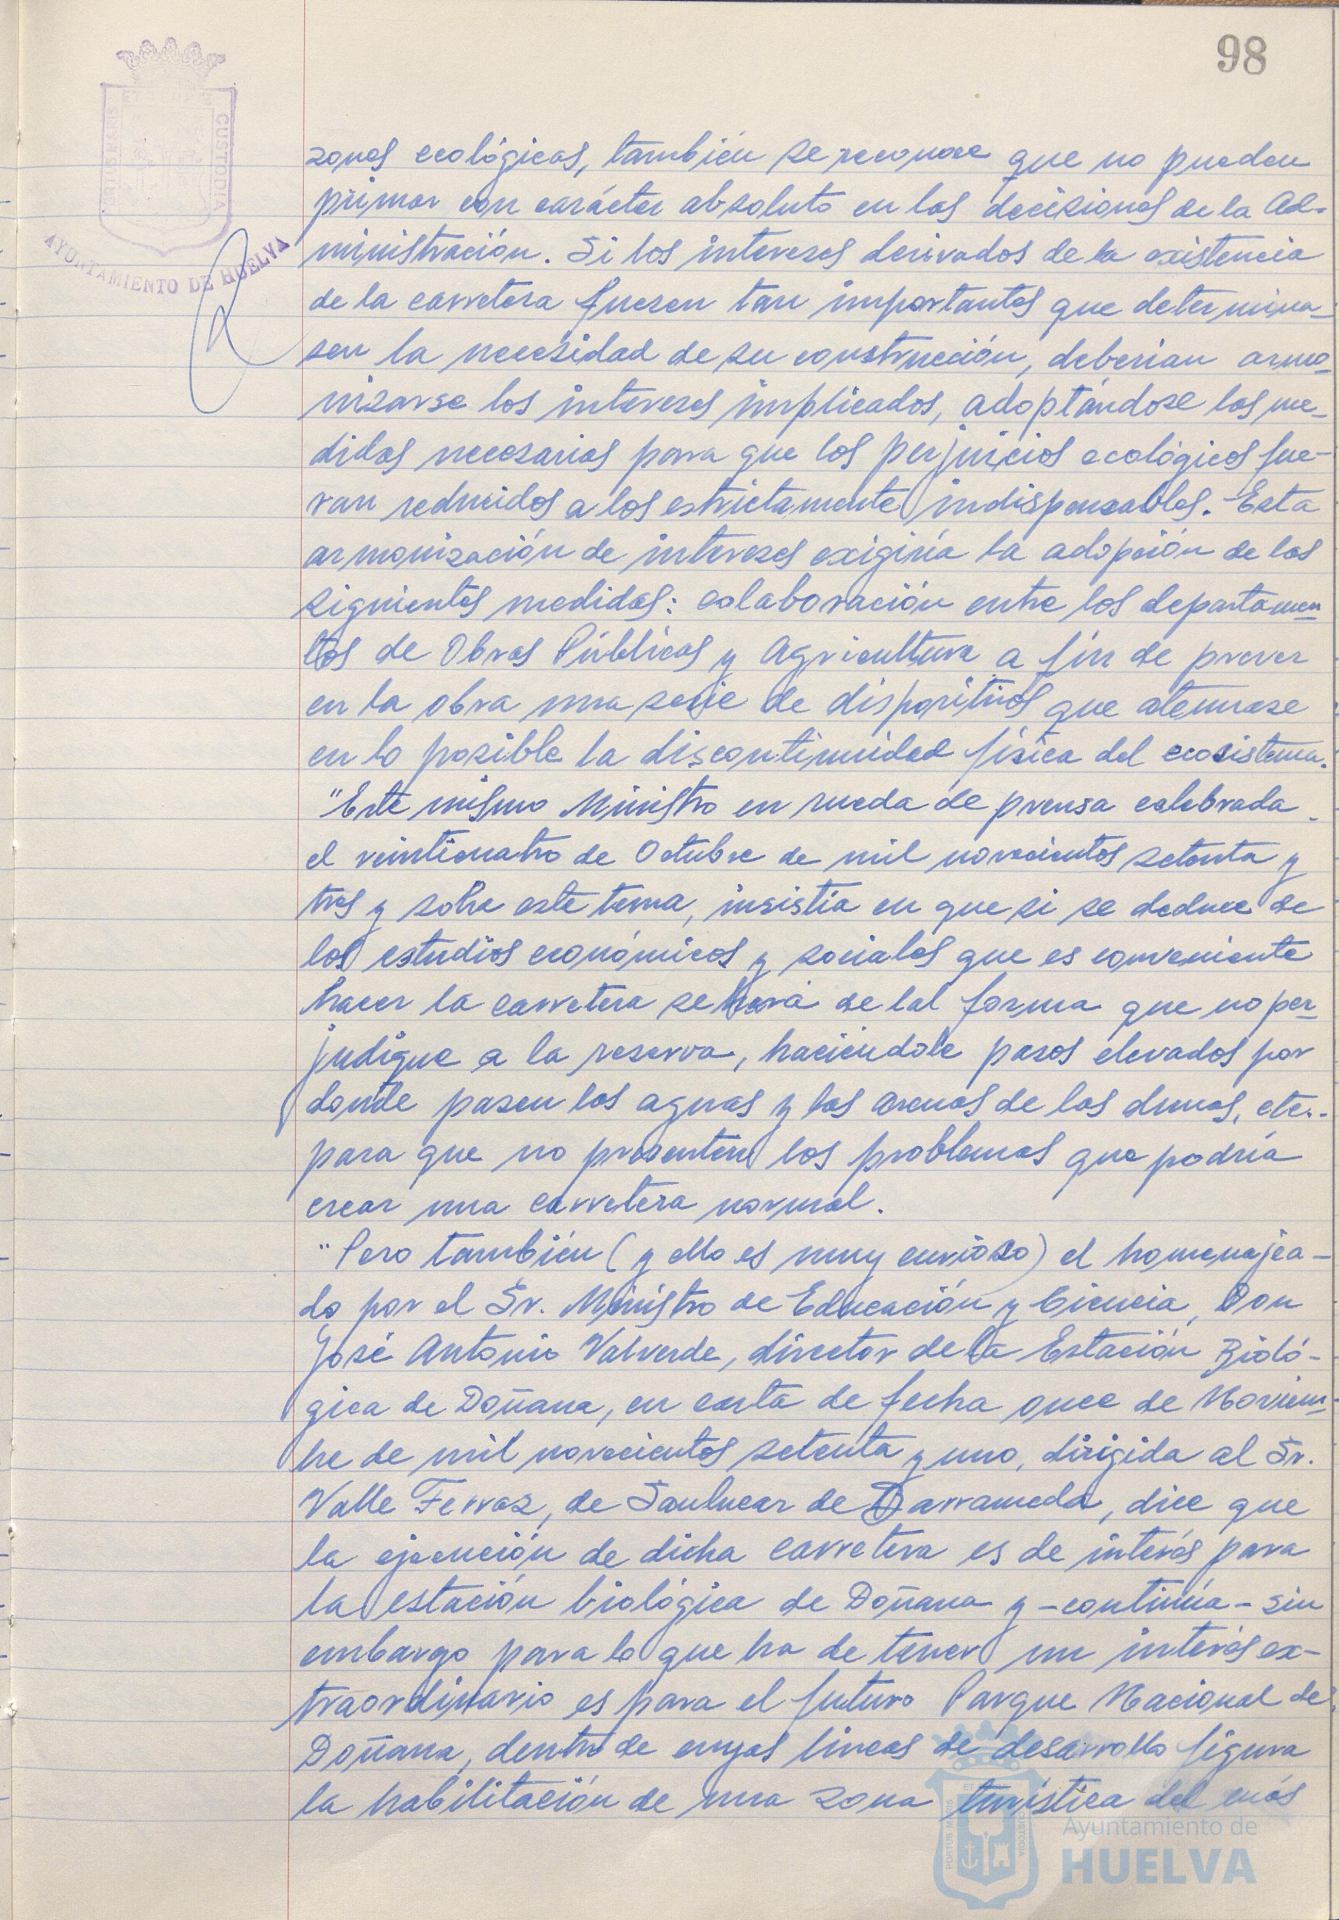 98
PORTUS MARIS
CUSTODIA
AYUNTAMIENTO DE HUELVA
zonas ecológicas, también se reconoce que no pueden
primar con carácter absoluto en las decisiones de la Ad-
ministración. Si los intereses derivados de la existencia
de la carretera fuesen tan importantes que determina-
sen la necesidad de su construcción, deberían armo-
nizarse los intereses implicados, adoptándose las me-
didas necesarias para que los perjuicios ecológicos fue-
ran reducidos a los estrictamente indispensables. Esta
armonización de intereses exigiría la adopción de las
siguientes medidas: colaboración entre los departamen-
tos de Obras Públicas y Agricultura a fin de prever
en la obra una serie de dispositivos que atenuase
en lo posible la discontinuidad física del ecosistema.
"Este mismo Ministro en rueda de prensa celebrada
el veinticuatro de Octubre de mil novecientos setenta y
tres y sobre este tema, insistía en que si se deduce de
los estudios económicos y sociales que es conveniente
hacer la carretera se hará de tal forma que no per-
judique a la reserva, haciéndole pasos elevados por
donde pasen las aguas y las arenas de las dunas, etc..
para que no presenten los problemas que podría
crear una carretera normal.
"Pero también (y ello es muy curioso) el homenajea-
do por el Sr. Ministro de Educación y Ciencia, Don
José Antonio Valverde, director de la Estación Bioló-
gica de Doñana, en carta de fecha once de Noviem-
bre de mil novecientos setenta y uno, dirigida al Sr.
Valle Ferraz, de Sanlucar de Barrameda, dice que
la ejecución de dicha carretera es de interés para
la estación biológica de Doñana y -continúa- sin
embargo para lo que ha de tener un interés ex-
traordinario es para el futuro Parque Nacional de
Doñana, dentro de cuyas líneas de desarrollo figura
la habilitación de una zona turística del más
Ayuntamiento de
HUELVA